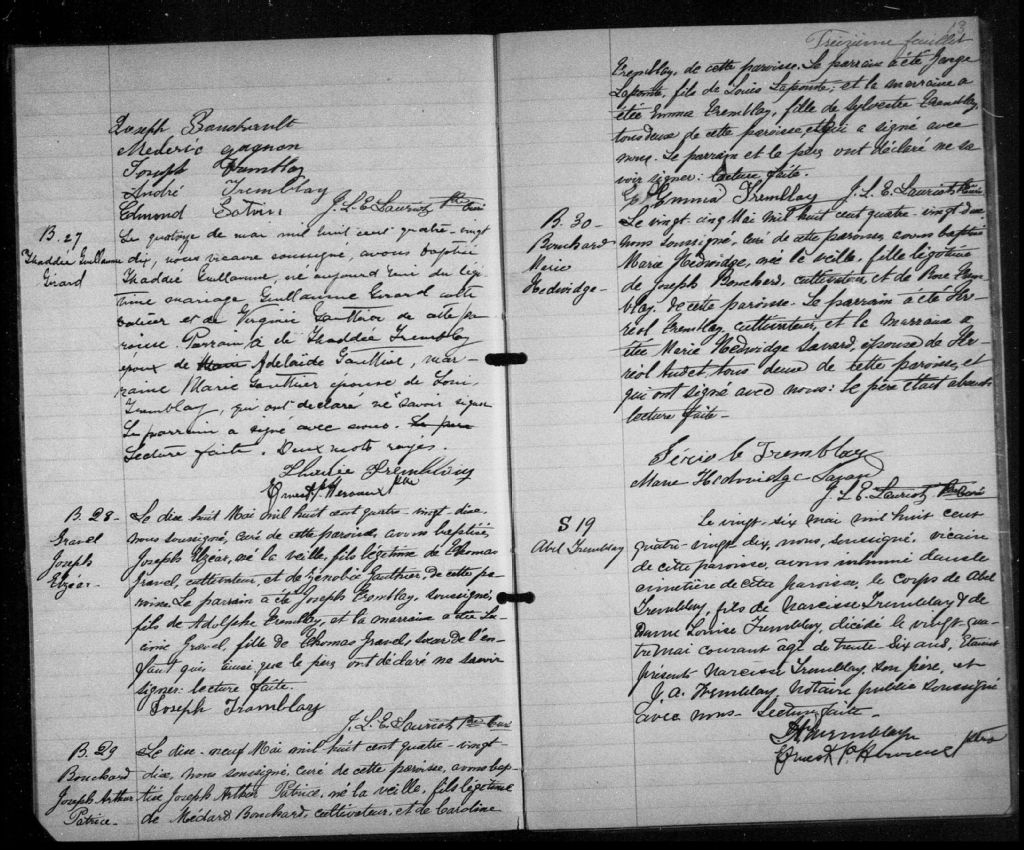 Joseph Bouchrault
Mederic gagnon
Joseph Tremblay
André Tremblay
Edmond Potvin J. L. E. Lauriot Ptre Curé
B. 27
Thaddée Guillaume
Girard
Le quatorze de mai mil huit cent quatre-vingt
dix, nous vicaire soussigné, avons baptisé
Thaddée Guillaume, né aujourd'hui du légi
time mariage Guillaume Girard culti
vateur et de Virginie Gauthier de cette pa
roisse. Parrain, a été Thaddée Tremblay
époux de Marie Adelaïde Gauthier, mar-
raine Marie Gauthier épouse de Louis
Tremblay, qui ont déclaré ne savoir signer
Le parrain a signé avec nous. Le père
Lecture faite. Deux mots rayés.
Thadée Tremblay
Ernest P. Hervieux Ptre
B. 28-
Gravel
Joseph
Elzéar-
Le dix huit Mai mil huit cent quatre-vingt-dix,
nous soussigné, curé de cette paroisse, avons baptisé,
Joseph Elzéar, né la veille, fils légitime de Thomas
Gravel, cultivateur, et de Zénobie Gauthier, de cette pa-
roisse. Le parrain a été Joseph Tremblay, soussigné,
fils de Adolphe Tremblay, et la marraine a été Lu-
cine Gravel, fille de Thomas Gravel, sœur de l'en-
fant qui, ainsi que le père ont déclaré ne savoir
signer: lecture faite.
Joseph Tramblay
J. L. E. Lauriot Ptre Curé
B. 29
Bouchard
Joseph Arthur
Patrice-
Le dix-neuf Mai mil huit cent quatre-vingt-
dix, nous soussigné, curé de cette paroisse, avons bap-
tisé Joseph Arthur Patrice, né la veille, fils légitime
de Médard Bouchard, cultivateur, et de Caroline
13
Treizième feuillet
Tremblay, de cette paroisse. Le parrain a été
Lapointe, fils de Louis Lapointe, et la marraine a
étée Emma Tremblay, fille de Sylvestre Tremblay,
tous deux de cette paroisse, et qui a signé avec
nous. Le parrain et le père ont déclaré ne sa
voir signer: lecture faite.
Emma Tremblay J. L. E. Lauriot Ptre Curé
B. 30-
Bouchard
Marie
Hedwidge-
Le vingt cinq Mai mil huit cent quatre-vingt dix,
nous soussigné, curé de cette paroisse, avons baptisé
Marie Hedwidge, née la veille, fille légitime
de Joseph Bouchard, cultivateur et de Rose Trem
blay, de cette paroisse. Le parrain a été
Tremblay, cultivateur, et la marraine a
étée Marie Hedwidge Savard, épouse de
tous deux de cette paroisse, et
qui ont signé avec nous: Le père était absent
lecture faite-
Tremblay
Marie Hedwidge Savar
J. L. E. Lauriot Ptre Curé
S 19
Abel Tremblay
Le vingt-six mai mil huit cent
quatre-vingt dix, nous, soussigné vicaire
de cette paroisse, avons inhumé dans le
cimetière de cette paroisse, le corps de Abel
Tremblay, fils de Narcisse Tremblay & de
Dame Louise Tremblay, décédé le vingt qua
tre mai courant âgé de trente-six ans, Etaient
présents Narcisse Tremblay, son père, et
J. A. Tremblay, Notaire public soussigné
avec nous- Lecture faite-
JATremblay
Ernest P. Hervieux ptre